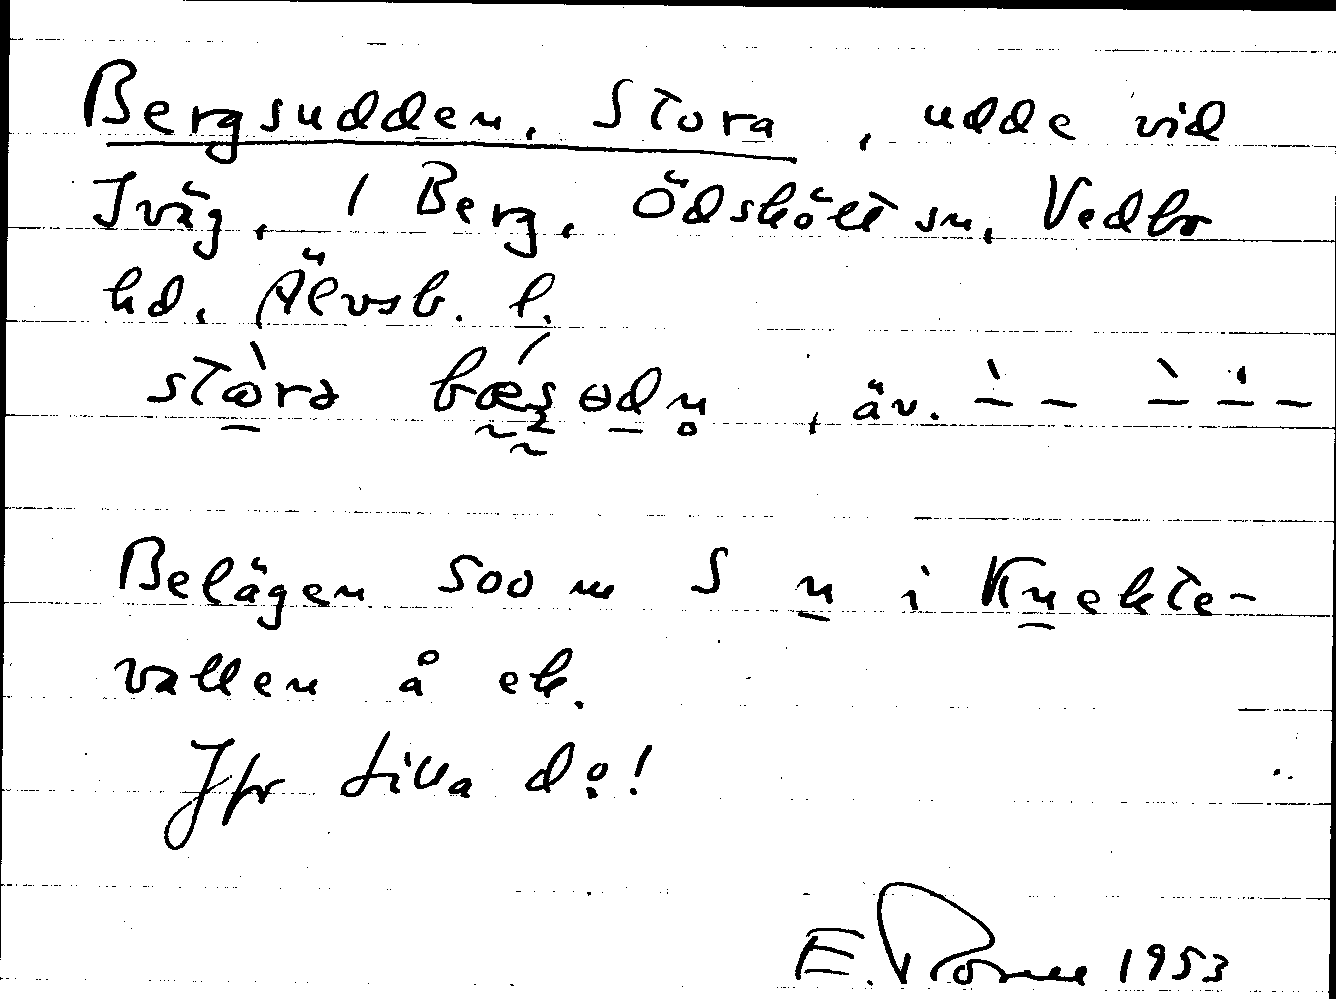 Bergsudden, Stora, udde vid
Iväg, 1 Berg, Ödskölt sn, Vedbo
hd, Älvsb. l.
Belägen 500 m S n i Knekte-
vallen å ek.
Jfr Lilla d:o!
E. 1953